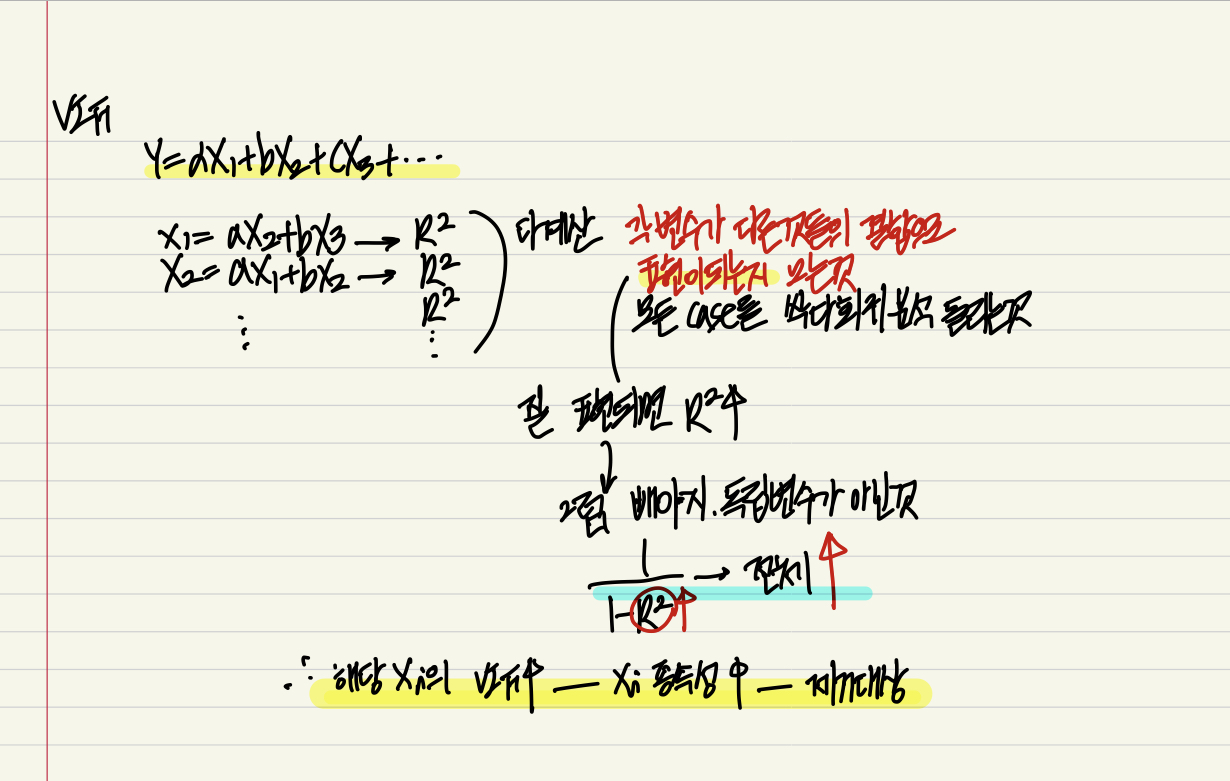 VIF
Y=aX₁+bX₂+cX₃+⋯
X₁= aX₂+bX₃ → R²
X₂= aX₁+bX₂ → R²
R²
⋮ ⋮
다계산 각 변수가 다른것들의 결합으로
표현이되는지 보는것
모든 case를 싹다회귀분석 돌리는것
잘 표현되면 R²↑
↓
그럼 빼야지. 독립변수가 아닌것
1/(1-R²↑) → 전체 ↑
∴ 해당 Xᵢ의 VIF↑ — Xᵢ 종속성↑ — 제거대상